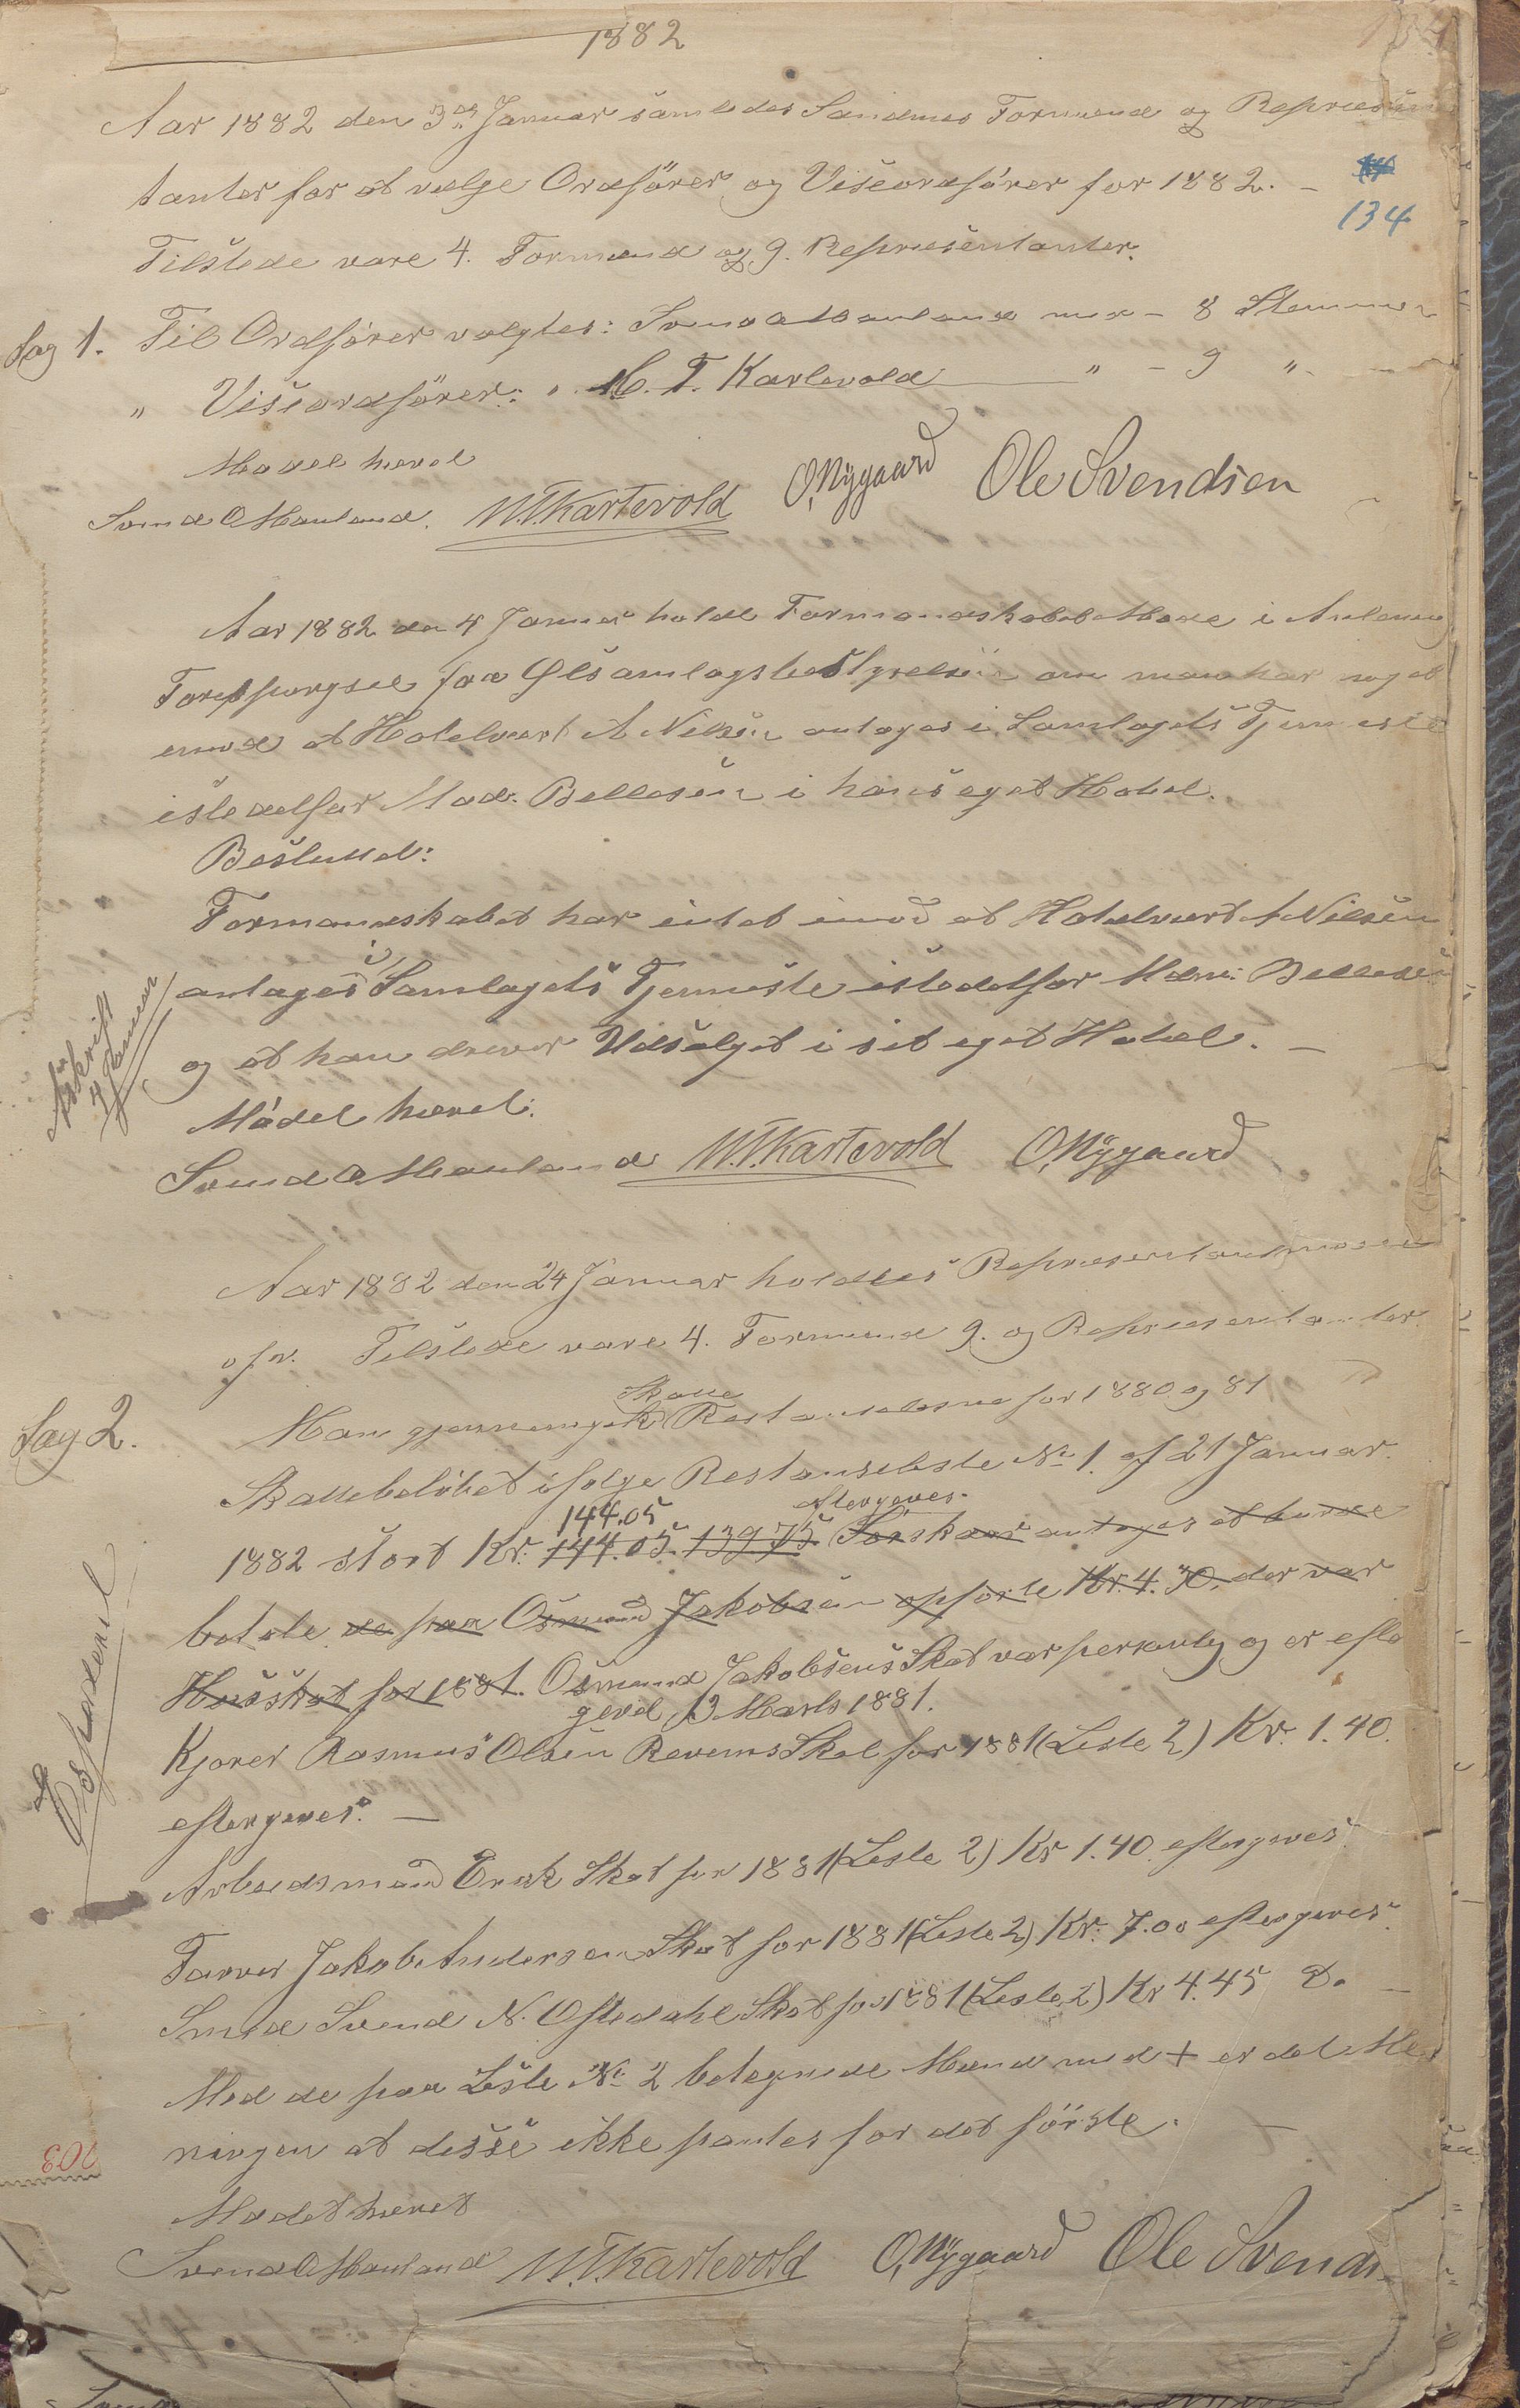 1882
Aar 1882 den 3die Januar samledes Sandnes Formænd og Repræsen
tanter for at vælge Ordförer og Viseordförer for 1882. –
134
Tilstede vare 4. Formænd og 9. Repræsentanter.
Sag 1. Til Ordförer valgtes: Svend O Hauland med – 8 Stemmer
" Viseordförer: " M. T. Kartevold " – 9 " –
Mödet hævet
Svend O Hauland. M.T. Kartevold O, Nÿgaard Ole Svendsen
Aar 1882 den 4 Januar holdt Formandskabet Möde i Anledning
Forespørgsel fra Ölsamlagsbestyrelsen om man har noget
imod at Hotelvært A Nilsen antages i Samlagets Tjeneste
istedetfor Mad. Bellesen i hans eget Hotel.
Besluttet:
Formandskabet har intet imod at Hotelvært A Nilsen
antages i Samlagets Tjeneste istedetfor Mdm: Bellesen
og at han driver Udsalget i sit eget Hotel. –
Afskrift
4 Januar
Mödet hævet:
Svend O Hauland M.T. Kartevold O, Nÿgaard
Aar 1882 den 24 Januar holdtes Repræsentantmöde
ofv. Tilstede vare 4. Formænd 9. og Repræsentanter.
Skatte
Sag 2. Man gjennemgik Restanselisterne for 1880 og 81
Skattebelöbet ifölge Restanseliste No 1. af 21 Januar.
144.05 eftergives.
1882 stort Kr. 144.05. 139.75 Förskaar antages at burde
betale de paa Osmund Jakobsen opförte Kr. 4. 30, der var
Husskat for 1881. Osmund Jakobsens Skat var personlig og er efter
givet 13 Marts 1881.
Expederet
Kjører Rasmus Olsen Revems Skat for 1881 (Liste 2) Kr. 1.40.
eftergives. –
Arbeidsmand Erik Skat for 1881 (Liste 2) Kr 1.40 eftergives.
Farver Jakob Andersen Skat for 1881 (Liste 2) Kr. 7.00 eftergives.
Smed Svend N. Oftedahl Skat for 1881 (Liste 2) Kr 4.45 Do –
Med de paa Liste No 2 betegnede Mænd med + er det Me
ningen at disse ikke pantes for det förste. –
203
Mødet hævet
Svend O Hauland M.T. Kartevold O, Nÿgaard Ole Svends